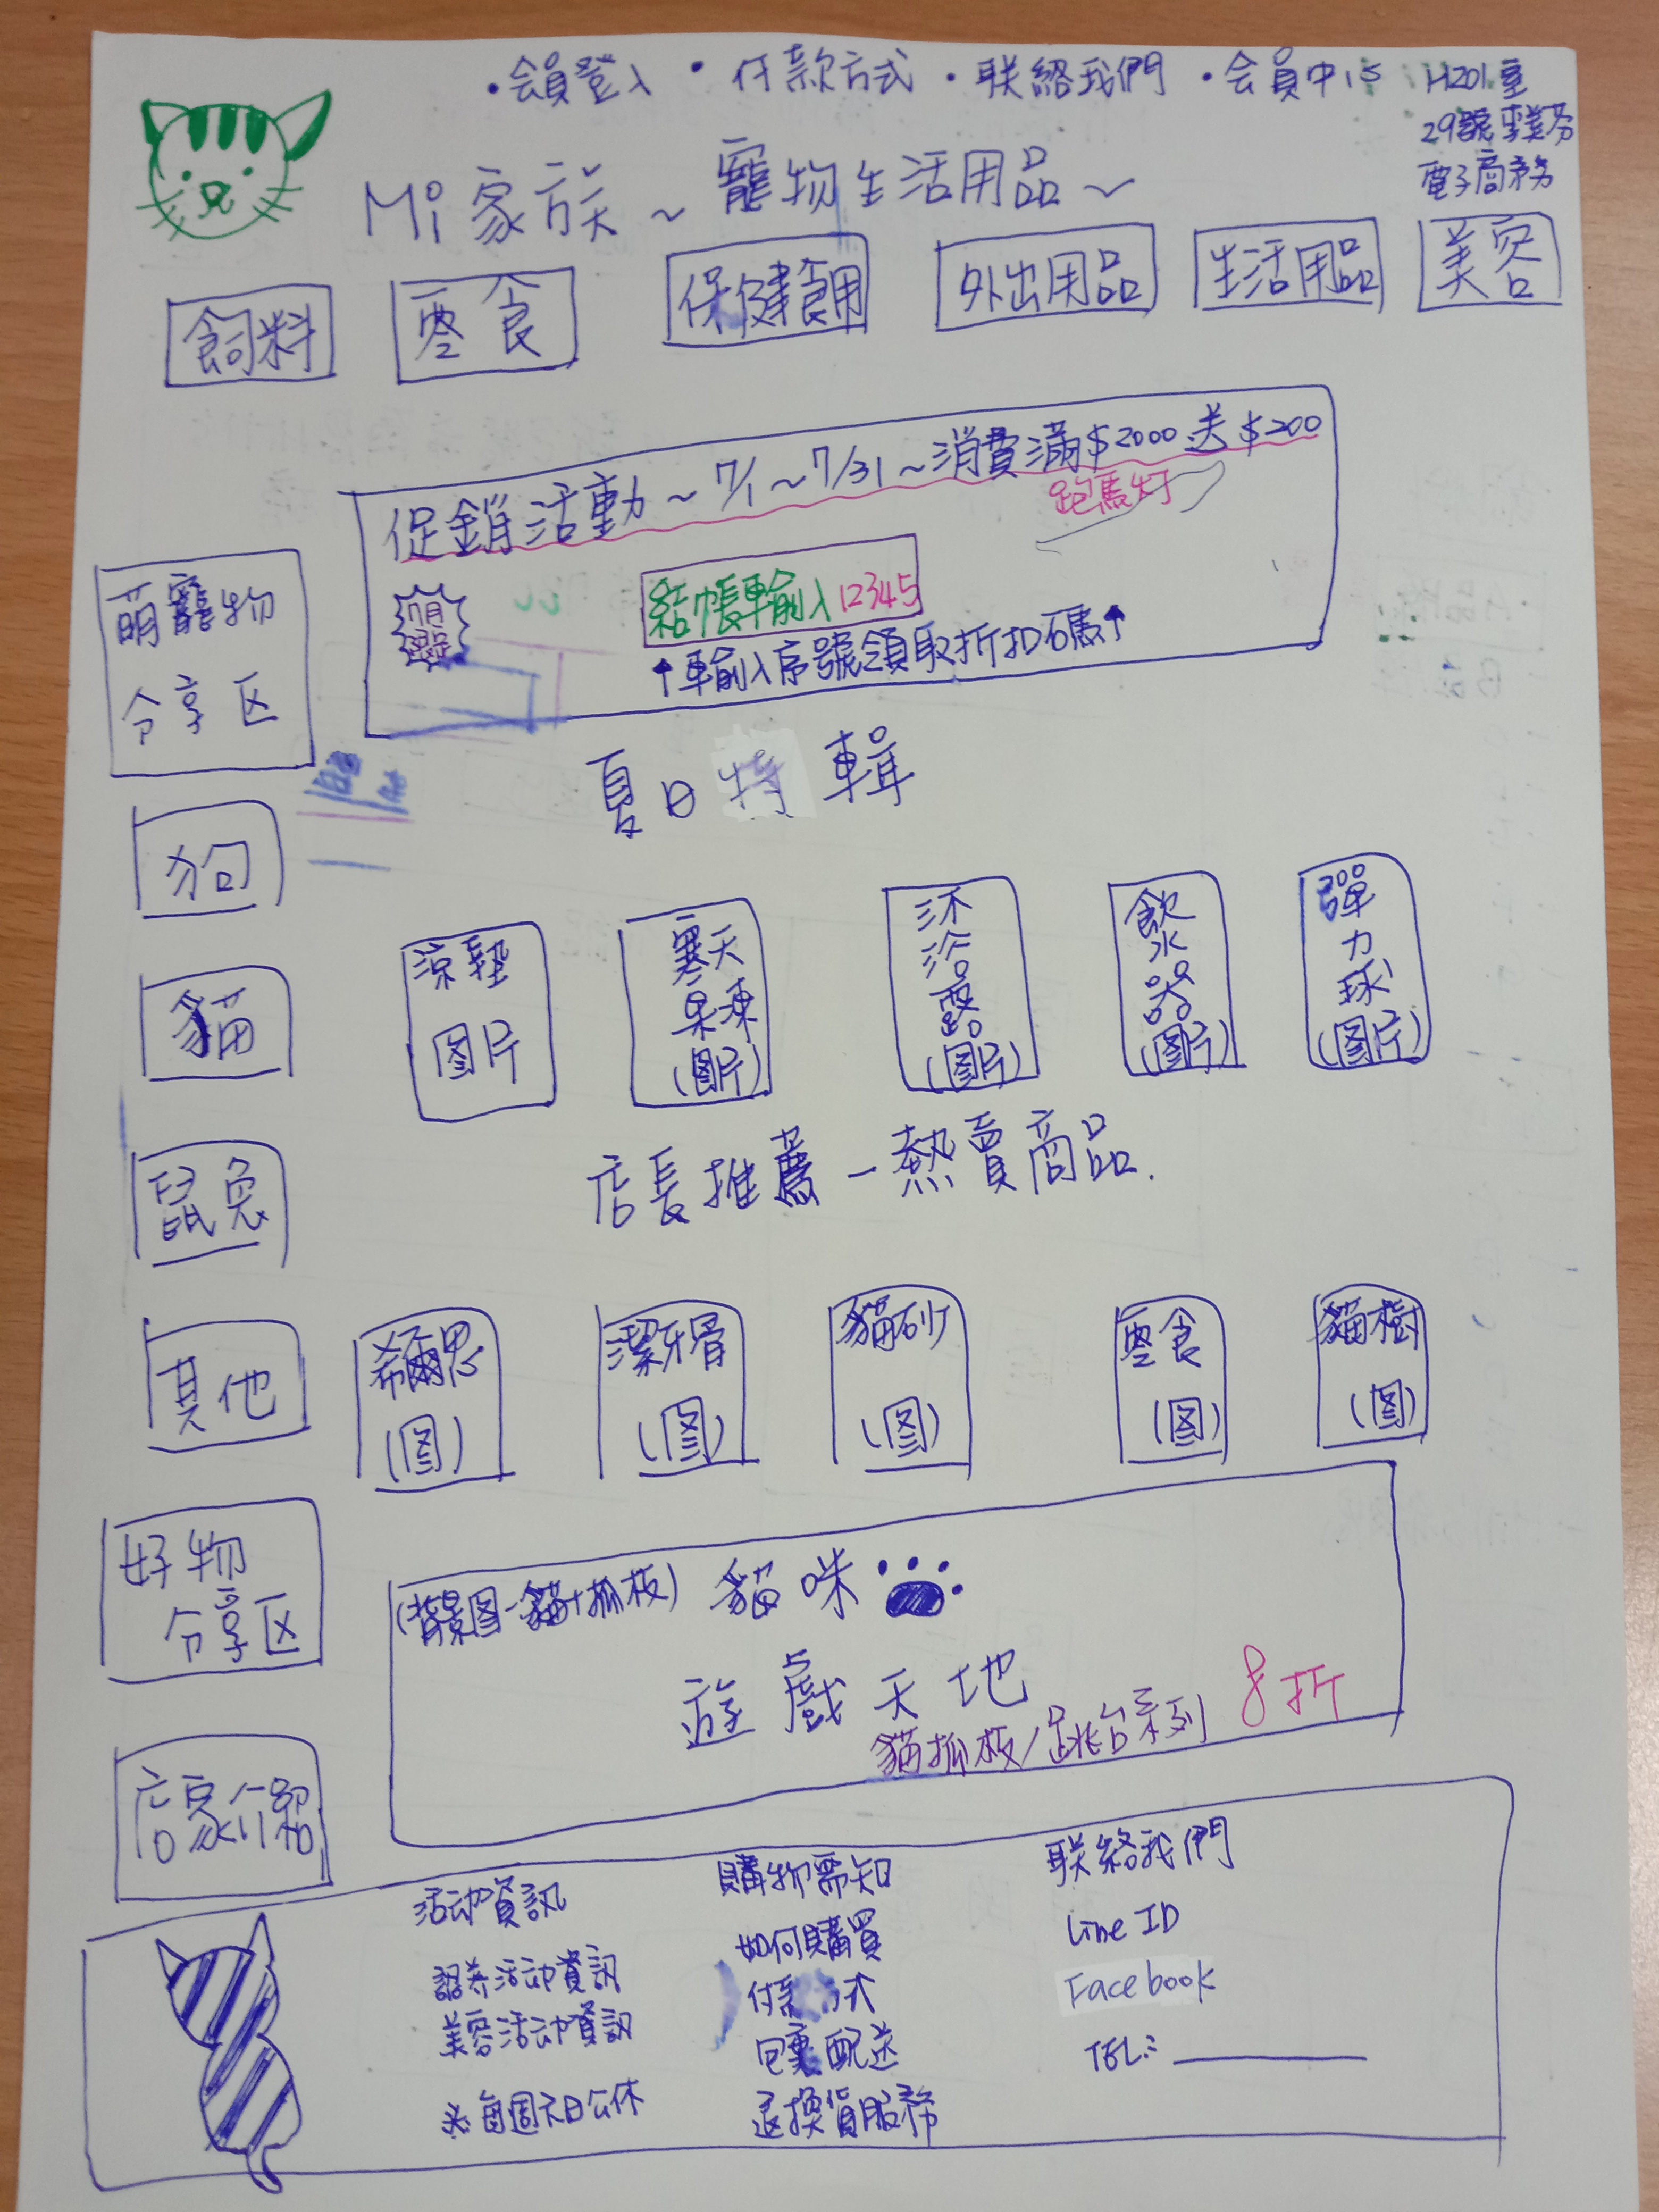 ·会員登入 ·付款方式 ·联絡我們 ·会員中心
H201室
29號
電子商務
Mi家族~寵物生活用品~
飼料 零食 保健食用 外出用品 生活用品 美容
促銷活動~7/1~7/31~消費滿$2000送$200
跑馬灯
結帳輸入12345
↑輸入序號領取折扣碼↑
萌寵物
分享区
狗
貓
鼠兔
其他
好物
分享区
店家介紹
夏日特輯
涼墊
图片
寒天
果凍
(图片)
沐浴露
(图片)
飲水器
(图片)
彈力球
(图片)
店長推薦-熱賣商品.
希爾思
(图)
潔牙骨
(图)
貓砂
(图)
零食
(图)
貓樹
(图)
(背景图-貓+抓板) 貓咪
遊戲天地
貓抓板/跳台系列 8折
活动資訊
認养活动資訊
美容活动資訊
※每週六日公休
購物需知
如何購買
付款方式
包裹配送
退換貨服務
联絡我們
Line ID
Facebook
TEL: